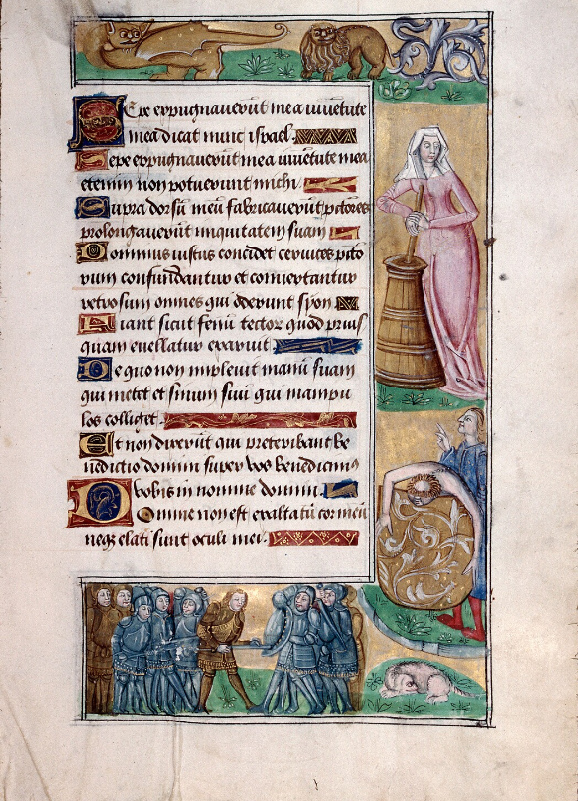 Sepe expugnaverūt me a iuvētute
mea dicat nunc israel.
Sepe expugnaverūt me a iuvētute mea
etenim non potuerunt michi.
Supra dorsū meū fabricaverūt pctores
prolongaverūt iniquitatem suam
Dominus iustus concidet cervices pcto
rum confundantur et convertantur
retrorsum omnes qui oderunt syon
Fiant sicut fenū tectorꝫ quod prius
quam evellatur exaruit
De quo non implevit manū suam
qui metet et sinum suū qui manipu
los colliget.
Et non dixerūt qui preteribant be
nedictio domini super vos benedicimꝰ
vobis in nomine domini.
Domine non est exaltatū cor meū
neqꝫ elati sunt oculi mei.